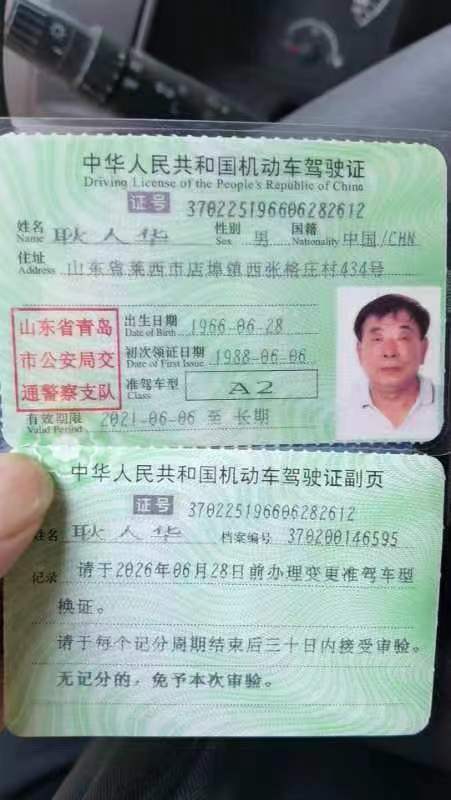 中华人民共和国机动车驾驶证
Driving License of the People's Republic of China
证号 370225196606282612
姓名 Name 耿人华 性别 Sex 男 国籍 Nationality 中国/CHN
住址 Address 山东省莱西市店埠镇西张格庄村434号
山东省青岛
市公安局交
通警察支队
出生日期 Date of Birth 1966-06-28
初次领证日期 Date of First Issue 1988-06-06
准驾车型 Class A2
有效期限 Valid Period 2021-06-06 至 长期
中华人民共和国机动车驾驶证副页
证号 370225196606282612
姓名 耿人华 档案编号 370200146595
记录 请于2026年06月28日前办理变更准驾车型
换证。
请于每个记分周期结束后三十日内接受审验。
无记分的，免予本次审验。